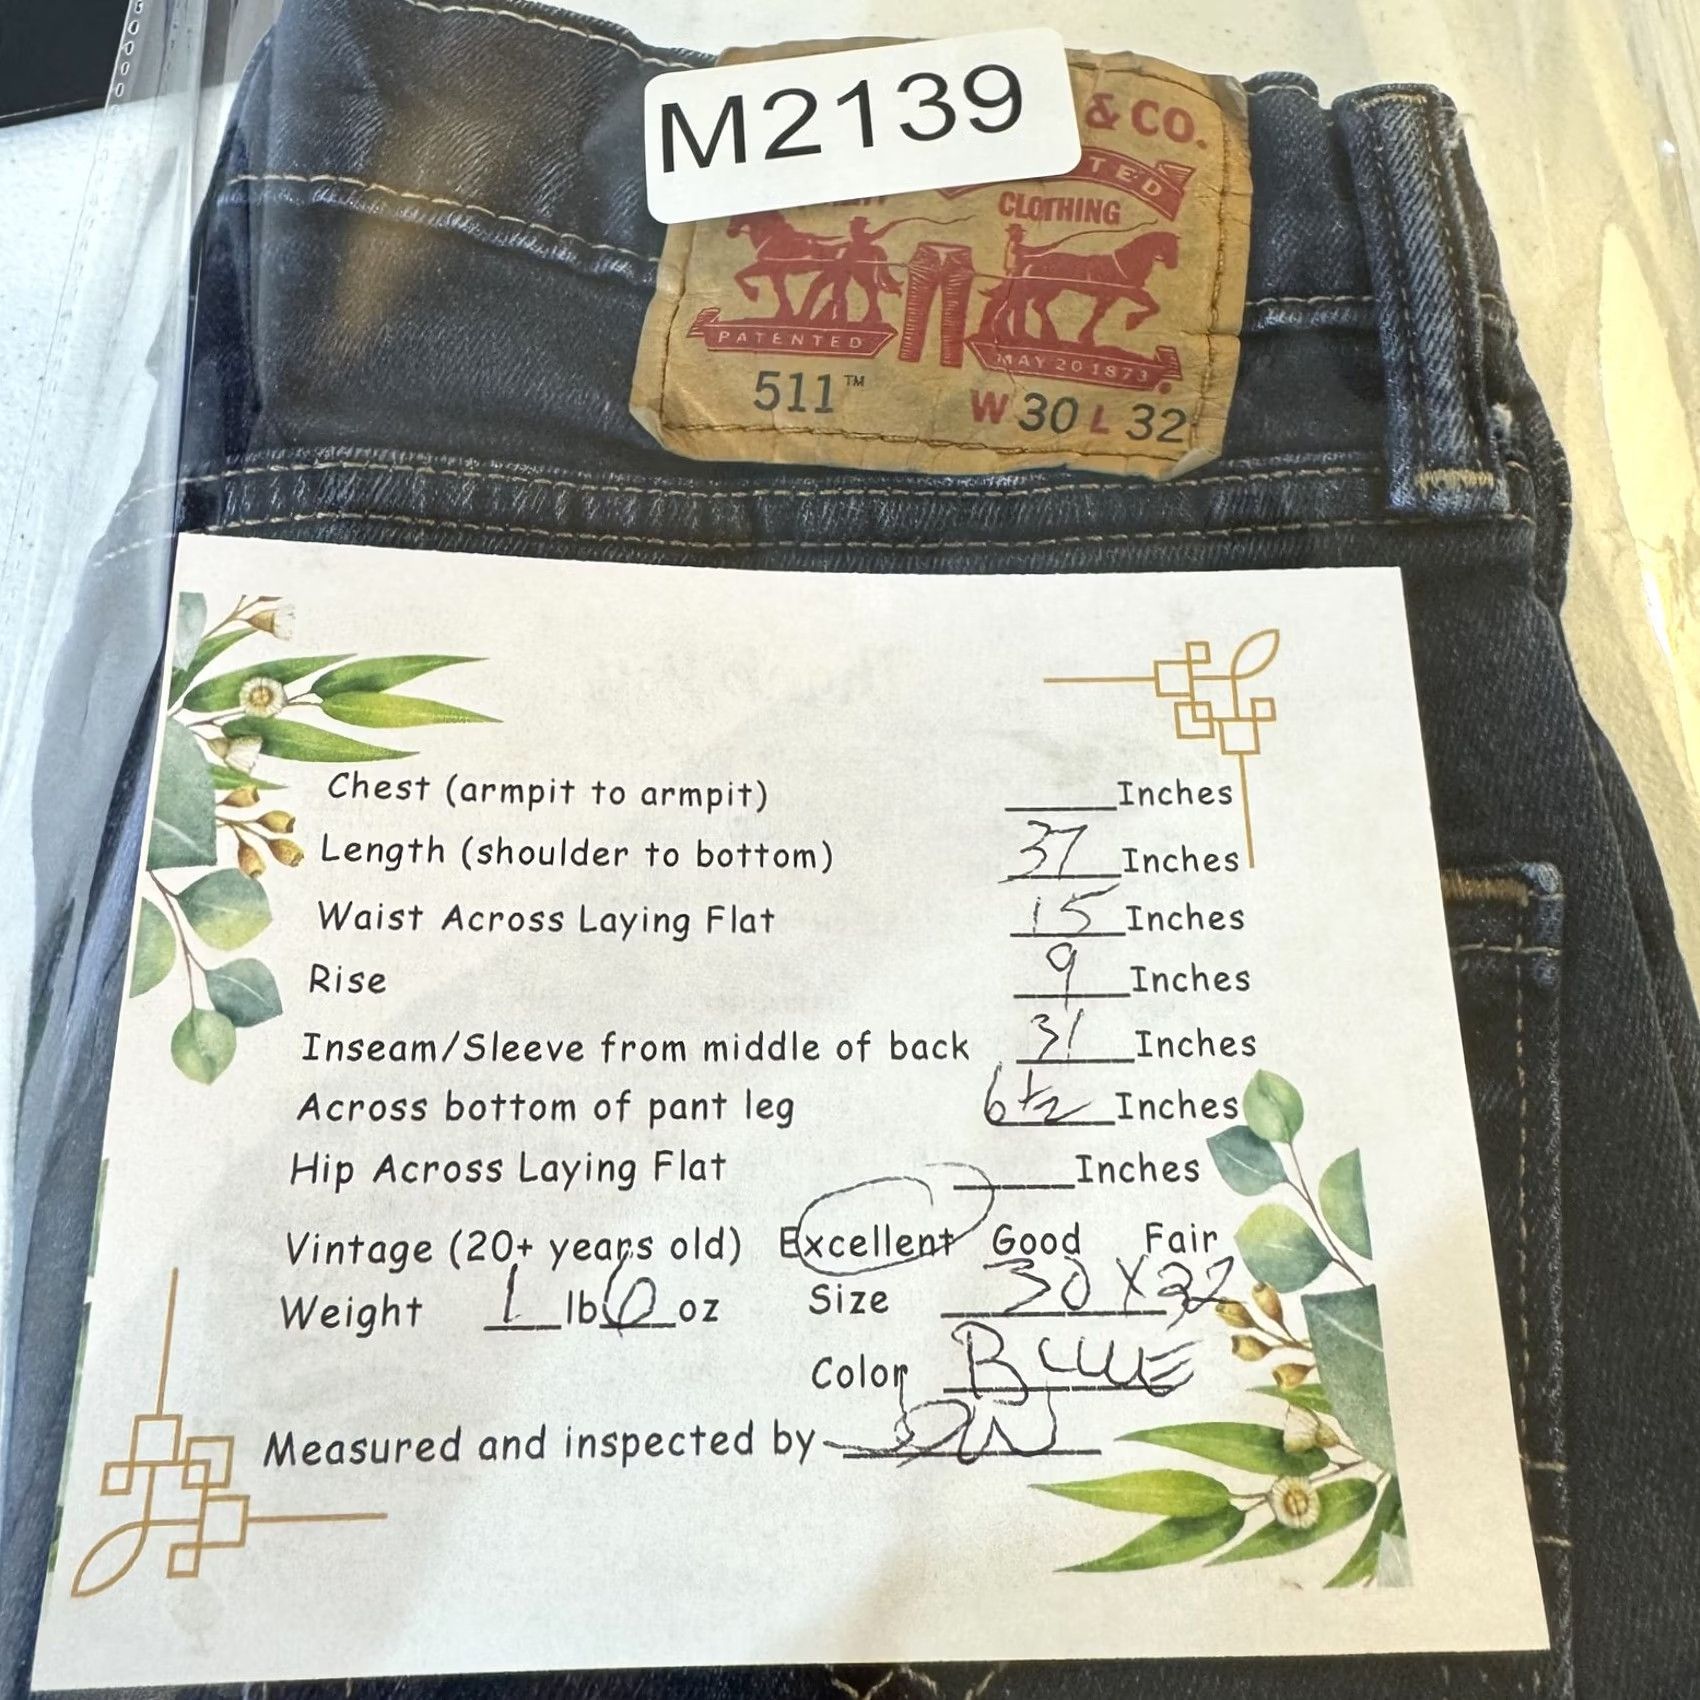 M2139
& CO.
TED
CLOTHING
PATENTED
MAY 20 1873
511™
W 30 L 32
Chest (armpit to armpit) ____Inches
Length (shoulder to bottom) 37 Inches
Waist Across Laying Flat 15 Inches
Rise 9 Inches
Inseam/Sleeve from middle of back 31 Inches
Across bottom of pant leg 6 1/2 Inches
Hip Across Laying Flat ____Inches
Vintage (20+ years old) Excellent Good Fair
Weight 1 lb 6 oz Size 30 x 32
Color BLUE
Measured and inspected by